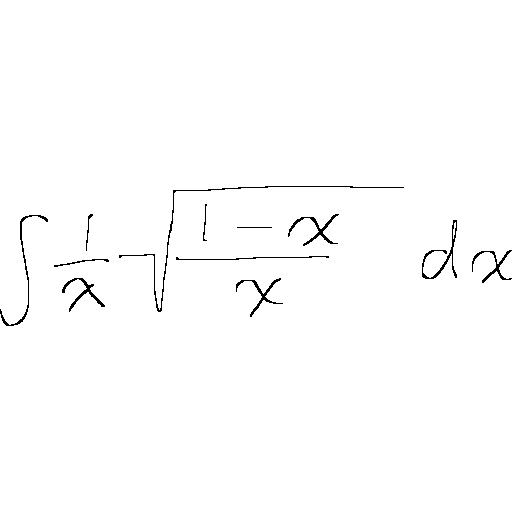 ∫ \frac{1}{x} \sqrt{\frac{1-x}{x}} dx